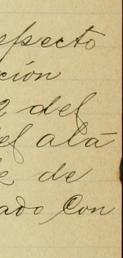 specto
ción
2 del
el ala
de
ado con